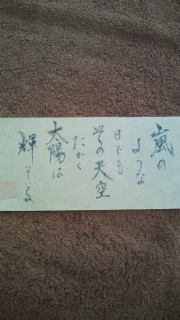 嵐の
ような
日でも
その天空
たかく
太陽は
輝いてる